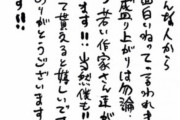 んな人から
面白いねって言われま
盛り上がりは勿論
若い作家さん達が
ます!!当然僕も!!
て貰えると嬉しいで
ありがとうございます!!